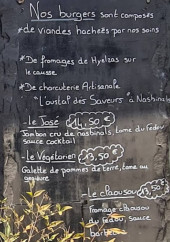 Nos burgers sont composés
*de viandes hachées par nos soins
*De fromages de Hyelzas sur
le causse
*De charcuterie Artisanale
"L'oustal des Saveurs" à Nasbinals
-le José 14,50 €
Jambon cru de nasbinals, tome du Fédou
sauce cocktail
-le Végétarien 13,50 €
Galette de pommes de terre, tome au
-le claousou 13,50 €
fromage claousou
du fédou, sauce